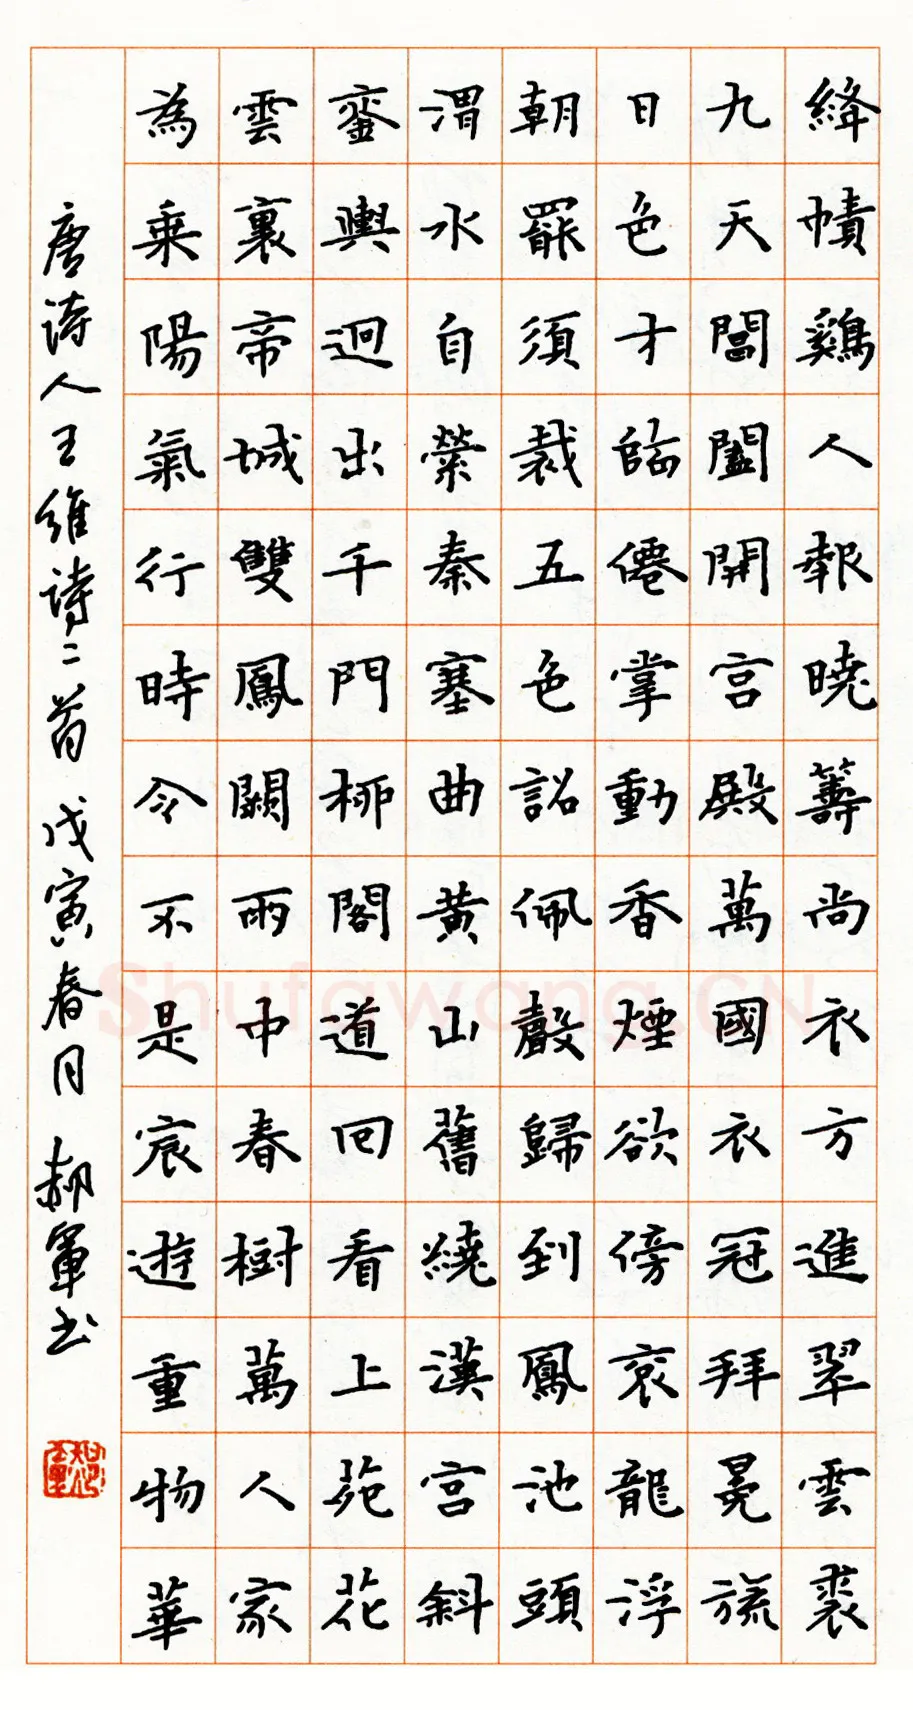 絳幘鷄人報曉籌尚衣方進翠雲裘
九天閶闔開宮殿萬國衣冠拜冕旒
日色才臨僊掌動香煙欲傍袞龍浮
朝罷須裁五色詔佩聲歸到鳳池頭
渭水自縈秦塞曲黄山舊繞漢宮斜
鑾輿迥出千門柳閣道回看上苑花
雲裏帝城雙鳳闕雨中春樹萬人家
為乘陽氣行時令不是宸遊重物華
唐诗人王維詩二首 戊寅春月 郝軍书
Shufawang.CN